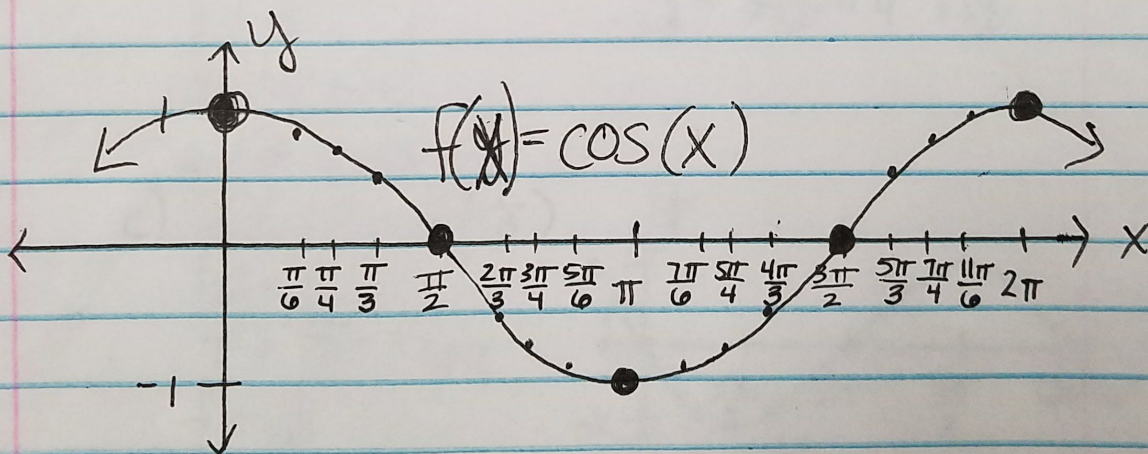 y
1
f(x) = cos(x)
x
π/6 π/4 π/3 π/2 2π/3 3π/4 5π/6 π 7π/6 5π/4 4π/3 3π/2 5π/3 7π/4 11π/6 2π
-1